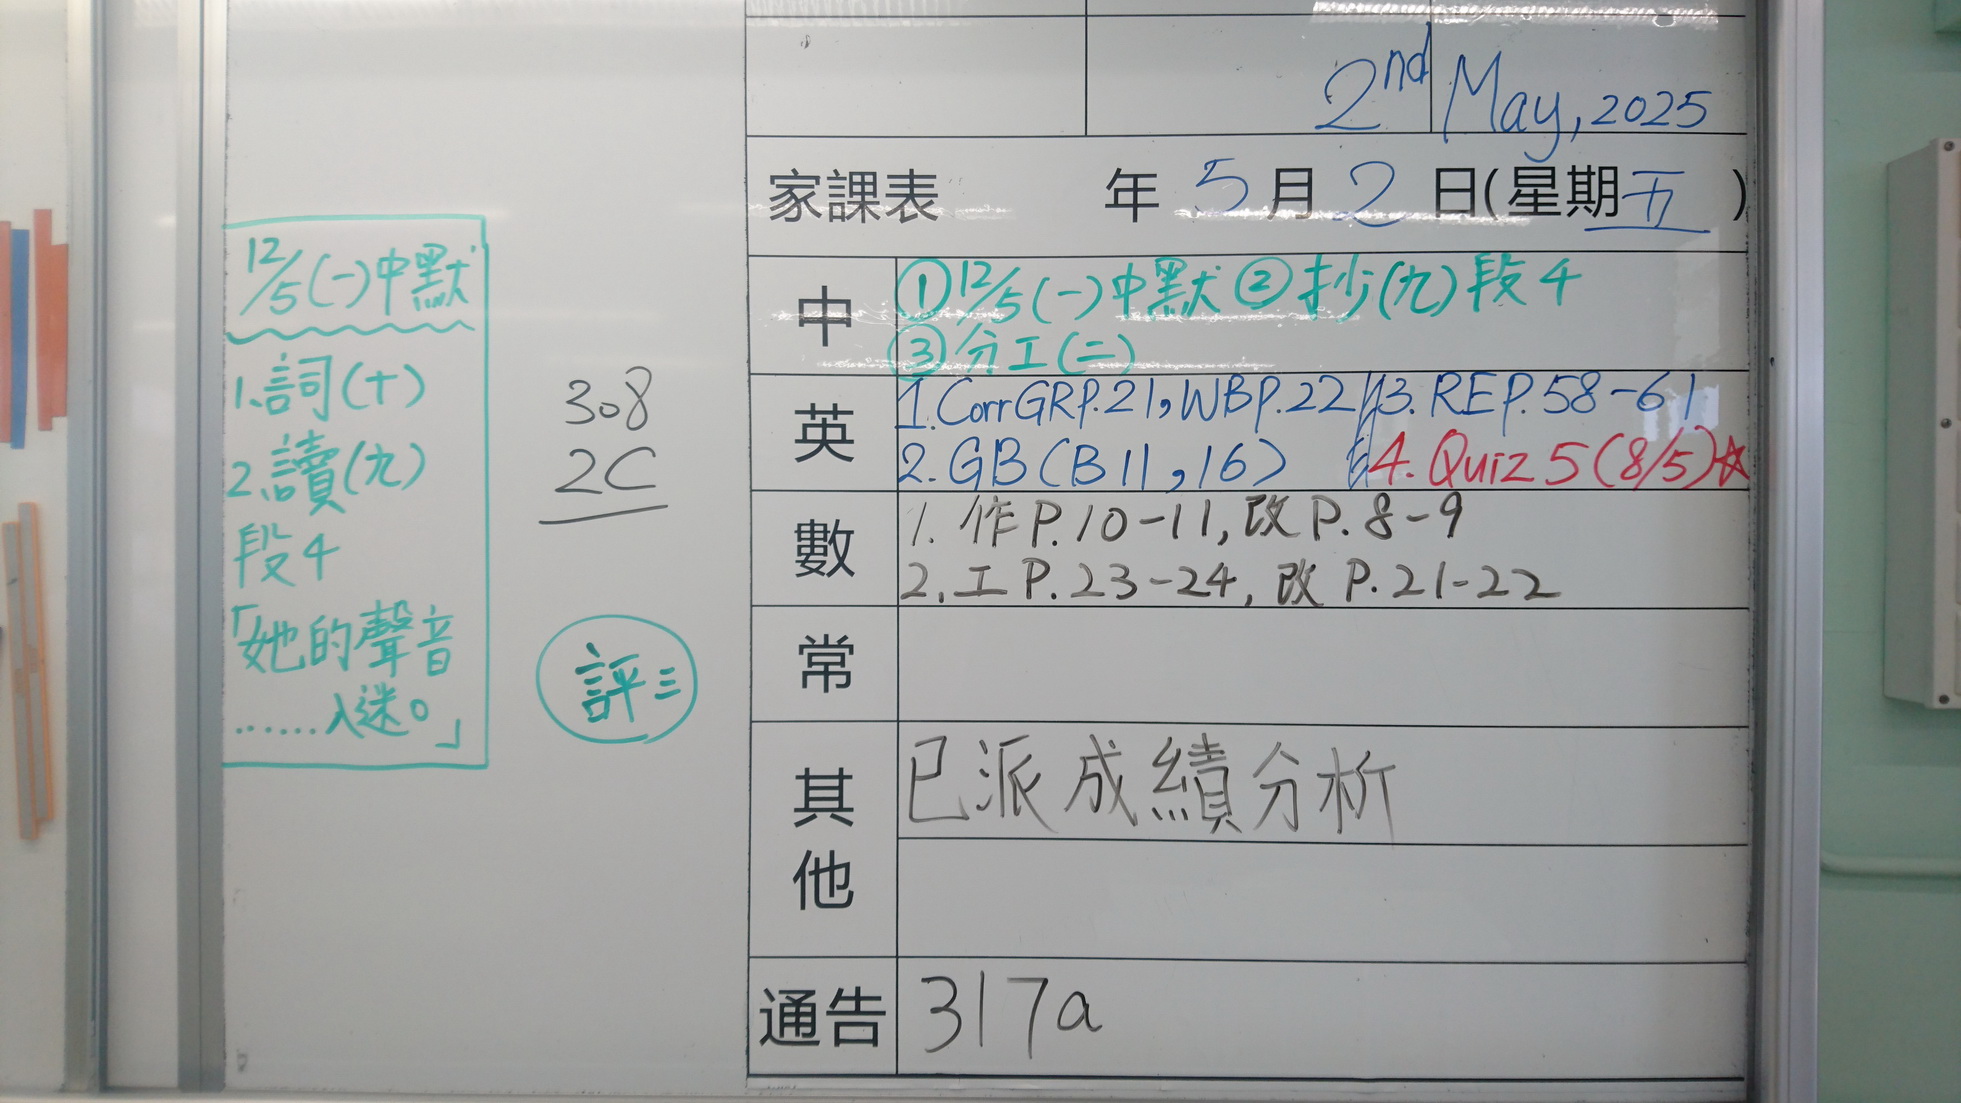 2nd May, 2025
家課表 年 5 月 2 日(星期五)
中
①12/5(一)中默 ②抄(九)段4
③分工(二)
英
1.Corr GRP.21, WBP.22 3. REP.58-61
2. GB(B11,16) 4. Quiz 5 (8/5)☆
數
1. 作P.10-11, 改P.8-9
2. 工P.23-24, 改P.21-22
常
其他
已派成績分析
通告
317a
12/5(一)中默
1.詞(十)
2.讀(九)
段4
「她的聲音
......入迷。」
308
2C
評三